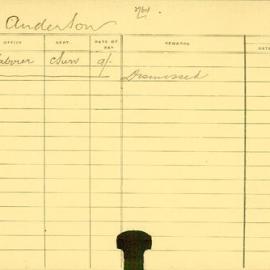 Anderson
OFFICE DEPT. RATE OF PAY REMARKS DATE
abourer Surv 9/-
Dismissed